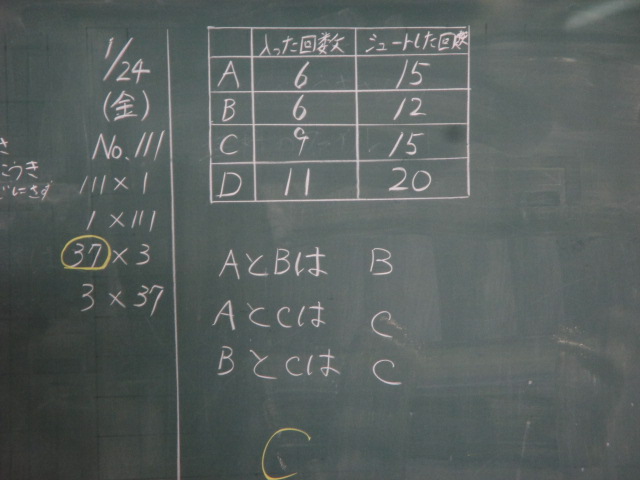 1/24
(金)
No.111
111×1
1×111
37×3
3×37
入った回数 シュートした回数
A 6 15
B 6 12
C 9 15
D 11 20
AとBは B
AとCは C
BとCは C
C